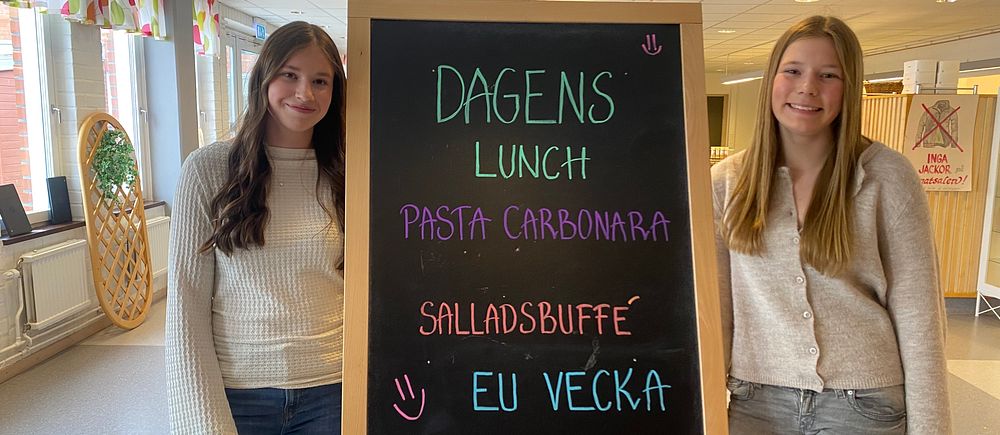 DAGENS
LUNCH
PASTA CARBONARA
SALLADSBUFFÉ
EU VECKA
INGA
JACKOR
på
matsalen!